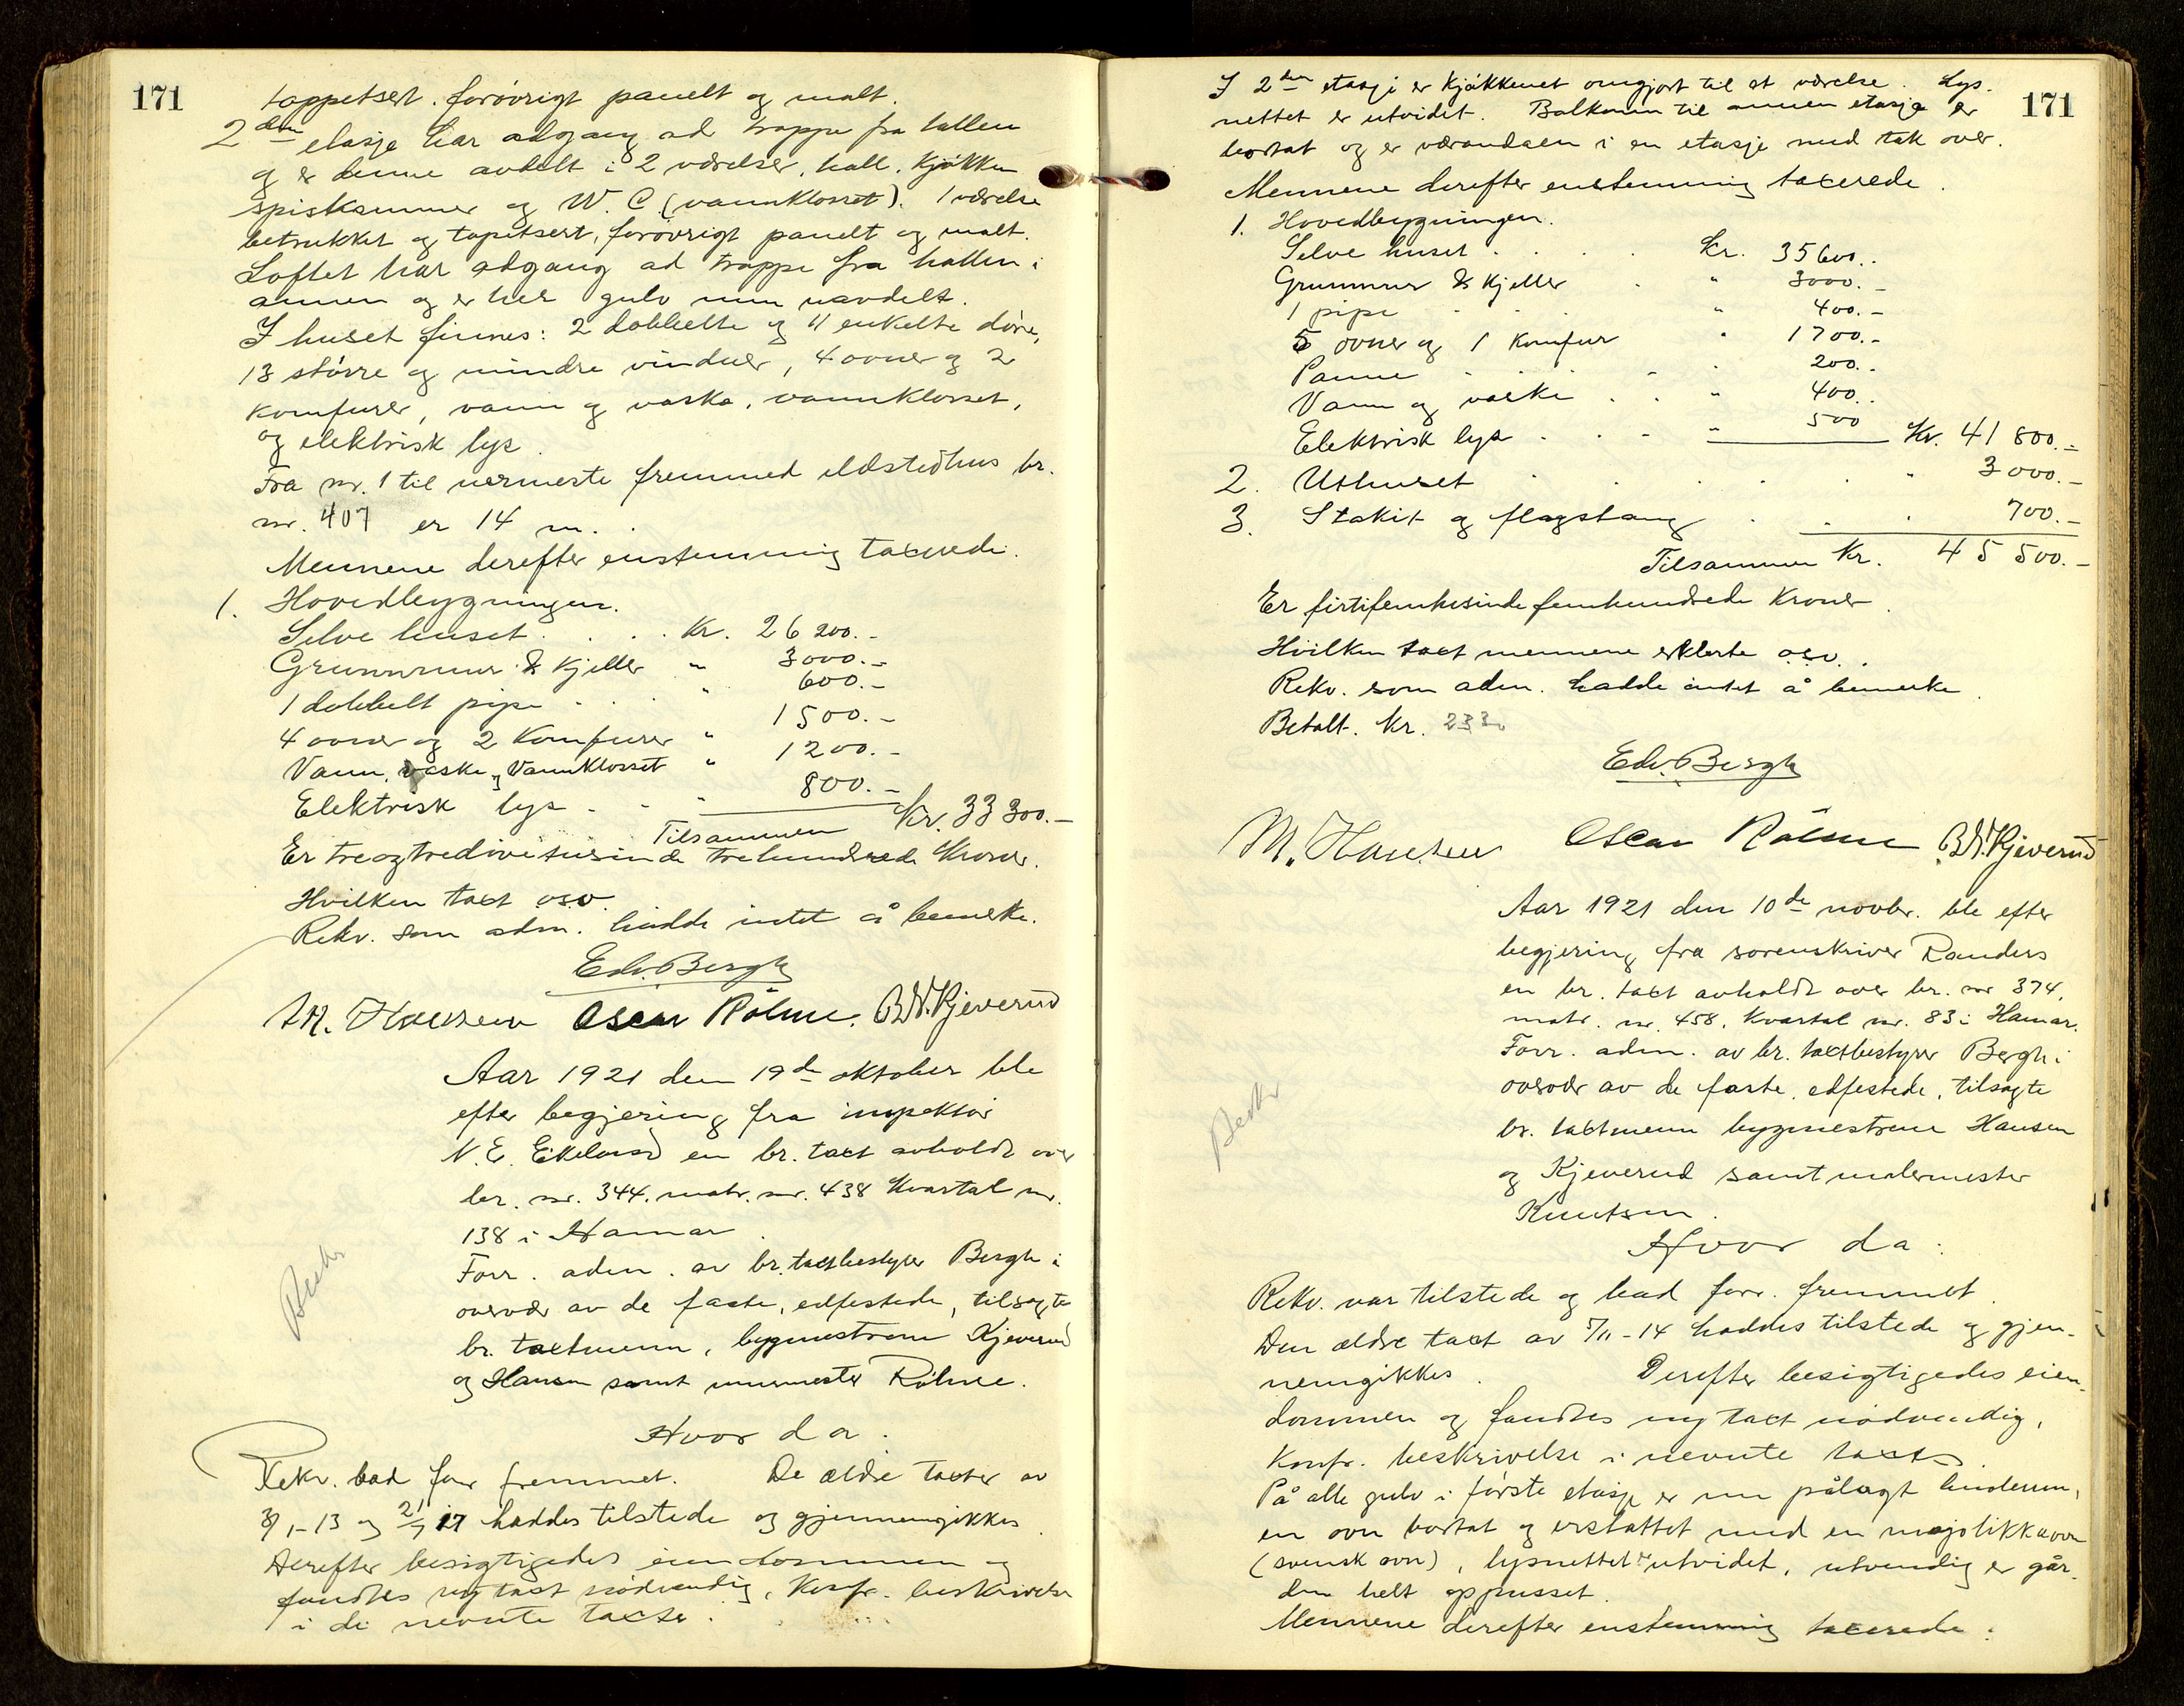 171
tappetsert. forøvrigt panelt og malt.
2den etasje har adgang ad trappe fra hallen
og er denne avdelt i 2 værelser, hall. kjøkken
spiskammer og W. C (vannklosset). 1 værelse
betrukket og tapetsert, forøvrigt panelt og malt.
Loftet har adgang ad trappe fra hallen i
annen og er her gulv men uavdelt.
I huset finnes: 2 dobbelte og 11 enkelte døre,
13 større og mindre vinduer, 4 ovner og 2
komfurer, vann og vaske, vannklosset,
og elektrisk lys.
Fra nr. 1 til nermeste fremmed ildstedhus br.
nr. 407 er 14 m.
Mennene derefter enstemmig taxerede.
1. Hovedbygningen.
Selve huset . . . . Kr. 26 200.-
Grunnmur & Kjeller " 3000.-
1 dobbelt pipe . . " 600.-
4 ovner og 2 Komfurer " 1500.-
Vann, vaske og Vannklosset " 1200.-
Elektrisk lys . . " 800.-
Tilsammen Kr. 33 300.-
Er treogtredivetusinde trehundrede Kroner.
Hvilken taxt osv.
Rekv. som adm. hadde intet å bemerke.
Edv. Bergh
M. Hansen Oscar Rølme. B.N. Kjeverud
Aar 1921 den 19de oktober ble
efter begjering fra inspektør
N. E. Ekelund en br. taxt avholdt over
br. nr. 344. matr. nr. 438 Kvartal nr.
138 i Hamar.
Forr. adm. av br. taxtbestyrer Bergh i
overvær av de faste, edfestede, tilsagte
br. taxtmenn, bygmestrene Kjeverud
og Hansen samt murmester Rølme.
Hvor da.
Rekv. bad forr fremmet. De ældre taxter av
3/1-13 og 21/7 17 haddes tilstede og gjennemgikkes.
Derefter besigtigedes eiendommen og
fandtes ny taxt nødvendig, Konfr. beskrivelse
i de nevnte taxter.
171
I 2den etasje er kjøkkenet omgjort til et værelse. Lys-
nettet er utvidet. Balkonen til annen etasje er
bortat og er værandaen i en etasje med tak over.
Mennene derefter enstemmig taxerede.
1. Hovedbygningen.
Selve huset . . . . Kr. 35600..
Grunnmur & Kjeller . " 3000.-
1 pipe . . . " 400.-
5 ovner og 1 Komfur " 1700.-
Panne . . . " 200..
Vann og vaske . . " 400..
Elektrisk lys . . . " 500 Kr. 41 800.-
2. Uthuset . . . . . " 3000.-
3. Stakit og flagstang . . . 700.-
Tilsammen Kr. 45 500.-
Er førtifemtusinde femhundrede Kroner.
Hvilken taxt mennene erklerte osv.
Rekv. som adm. hadde intet å bemerke.
Betalt. kr.
Edv. Bergh
M. Hansen Oscar Rølme B.N. Kjeverud
Aar 1921 den 10de novbr. ble efter
begjering fra sorenskriver Randers
en br. taxt avholdt over br. nr 374,
matr. nr. 458, Kvartal nr. 83 i Hamar.
Forr. adm. av br. taxtbestyrer Bergh i
overvær av de faste, edfestede, tilsagte
br. taxtmenn bygmestrene Hansen
og Kjeverud samt malermester
Knutsen.
Hvor da:
Rekv. var tilstede og bad forr. fremmet.
Den ældre taxt av 5/11-14 haddes tilstede og gjen-
nemgikkes. Derefter besigtigedes eien-
dommen og fandtes ny taxt nødvendig,
Konfr. beskrivelse i nevnte taxt
På alle gulv i første etasje er nu pålagt linoleum,
en ovn bortat og erstattet med en majolikkaovn
(svensk ovn), lysnettet er utvidet, utvendig er går-
den helt oppusset.
Mennene derefter enstemmig taxerede: